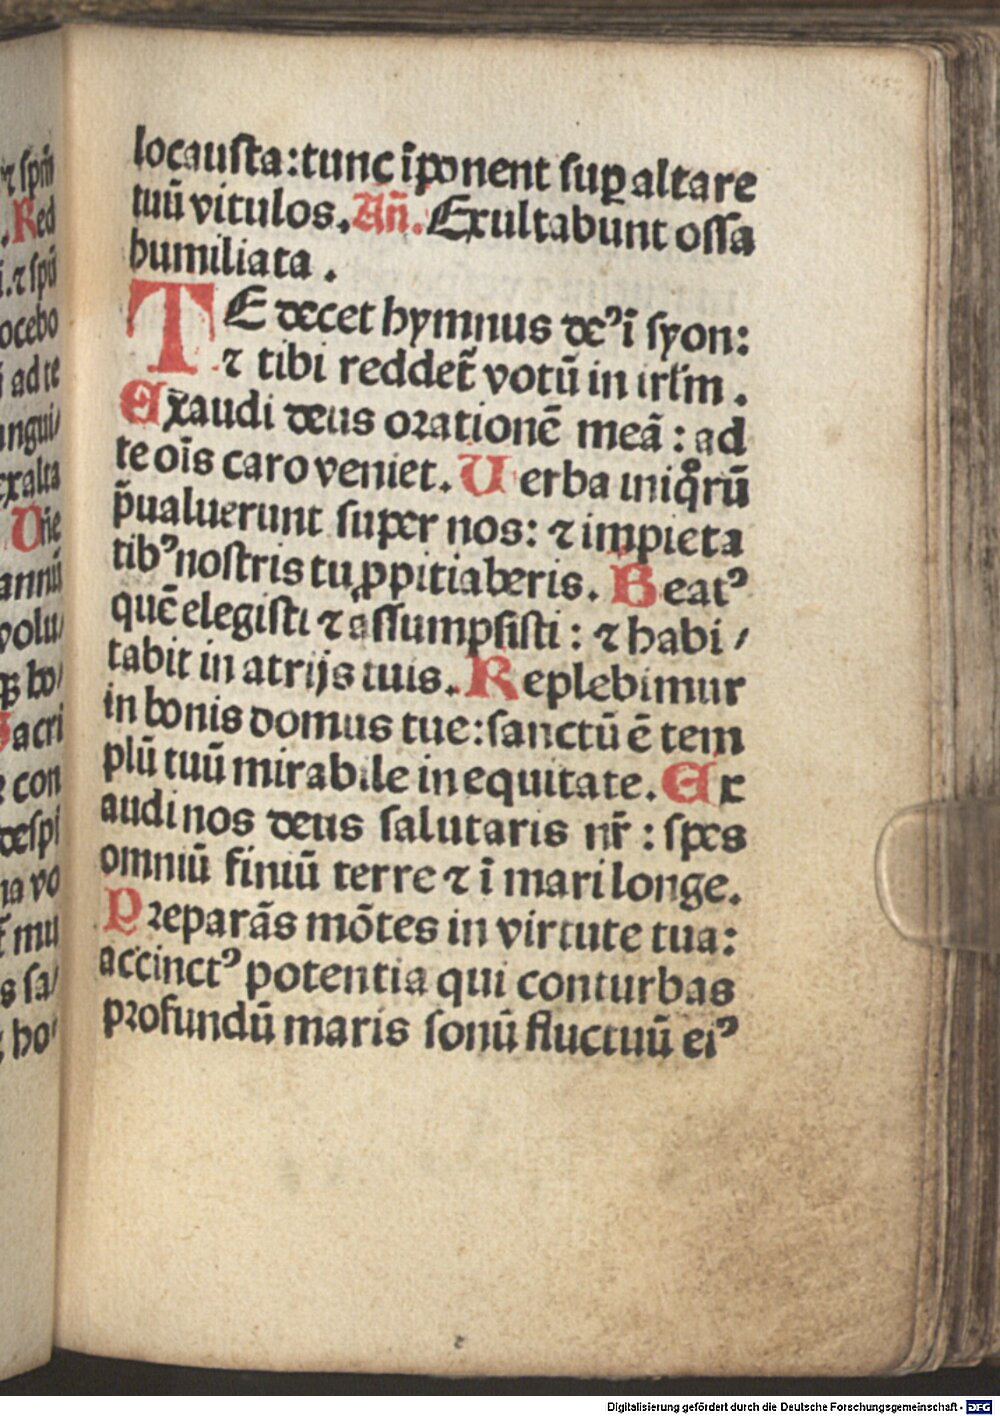 locausta:tunc īponent suꝑ altare
tuū vitulos. Añ. Exultabunt ossa
humiliata.
TE decet hymnus deꝰ ī syon:
⁊ tibi reddet̄ votū in irl̄m.
Exaudi deus orationē meā: ad
te oīs caro veniet. Uerba iniqͦrū
p̄ualuerunt super nos: ⁊ impieta
tibꝰ nostris tu ꝓpitiaberis. Beatꝰ
quē elegisti ⁊ assumpsisti: ⁊ habi/
tabit in atrijs tuis. Replebimur
in bonis domus tue: sanctū ē tem
plū tuū mirabile in equitate. Ex
audi nos deus salutaris nr̄: spes
omniū finiū terre ⁊ ī mari longe.
Preparās mōtes in virtute tua:
accinctꝰ potentia qui conturbas
profundū maris sonū fluctuū eiꝰ
⁊ spm̄
. Red
i. ⁊ spū
ocebo
i ad te
angui/
exalta
Dn̄e
annū
volu/
qꝫ ho/
Sacri
e con
despi
na vo
t̄ mu
s sa/
ho/
Digitalisierung gefördert durch die Deutsche Forschungsgemeinschaft - DFG